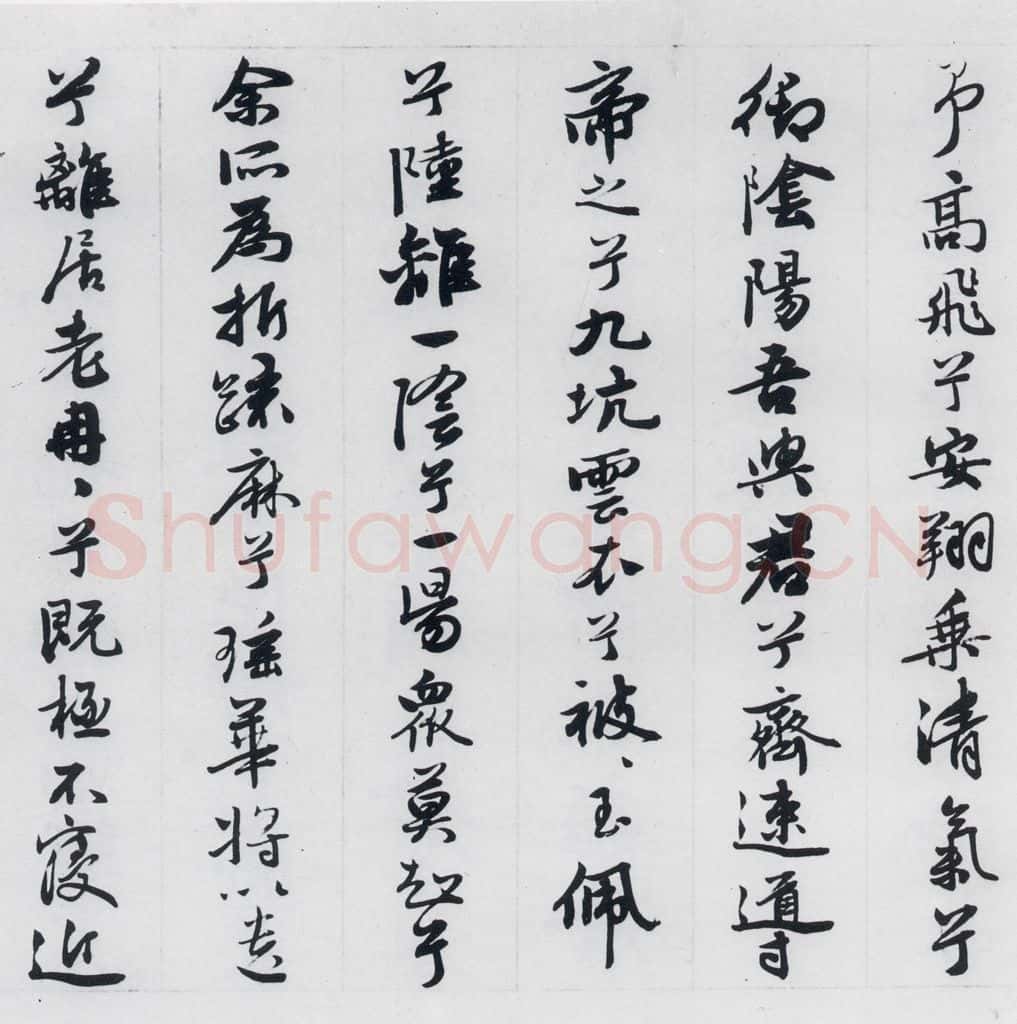 予高飛兮安翔乘清氣兮
御陰陽吾與君兮齊速導
帝之兮九坑雲衣兮被、玉佩
兮陸離一陰兮一陽眾莫知兮
余所為折疏麻兮瑤華將以遺
兮離居老冉、兮既極不寖近
Shufawang.CN